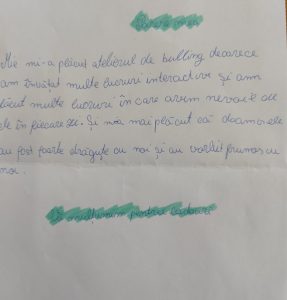 Mie mi-a plăcut atelierul de bulling deoarece
am învătat multe lucruri interactive și am
făcut multe lucruri în care avem nevoie de
ele în fiecare zi. Și mia mai plăcut că doamnele
au fost foarte drăguțe cu noi și au vorbit frumos cu
noi.
Vă mulțumim pentru